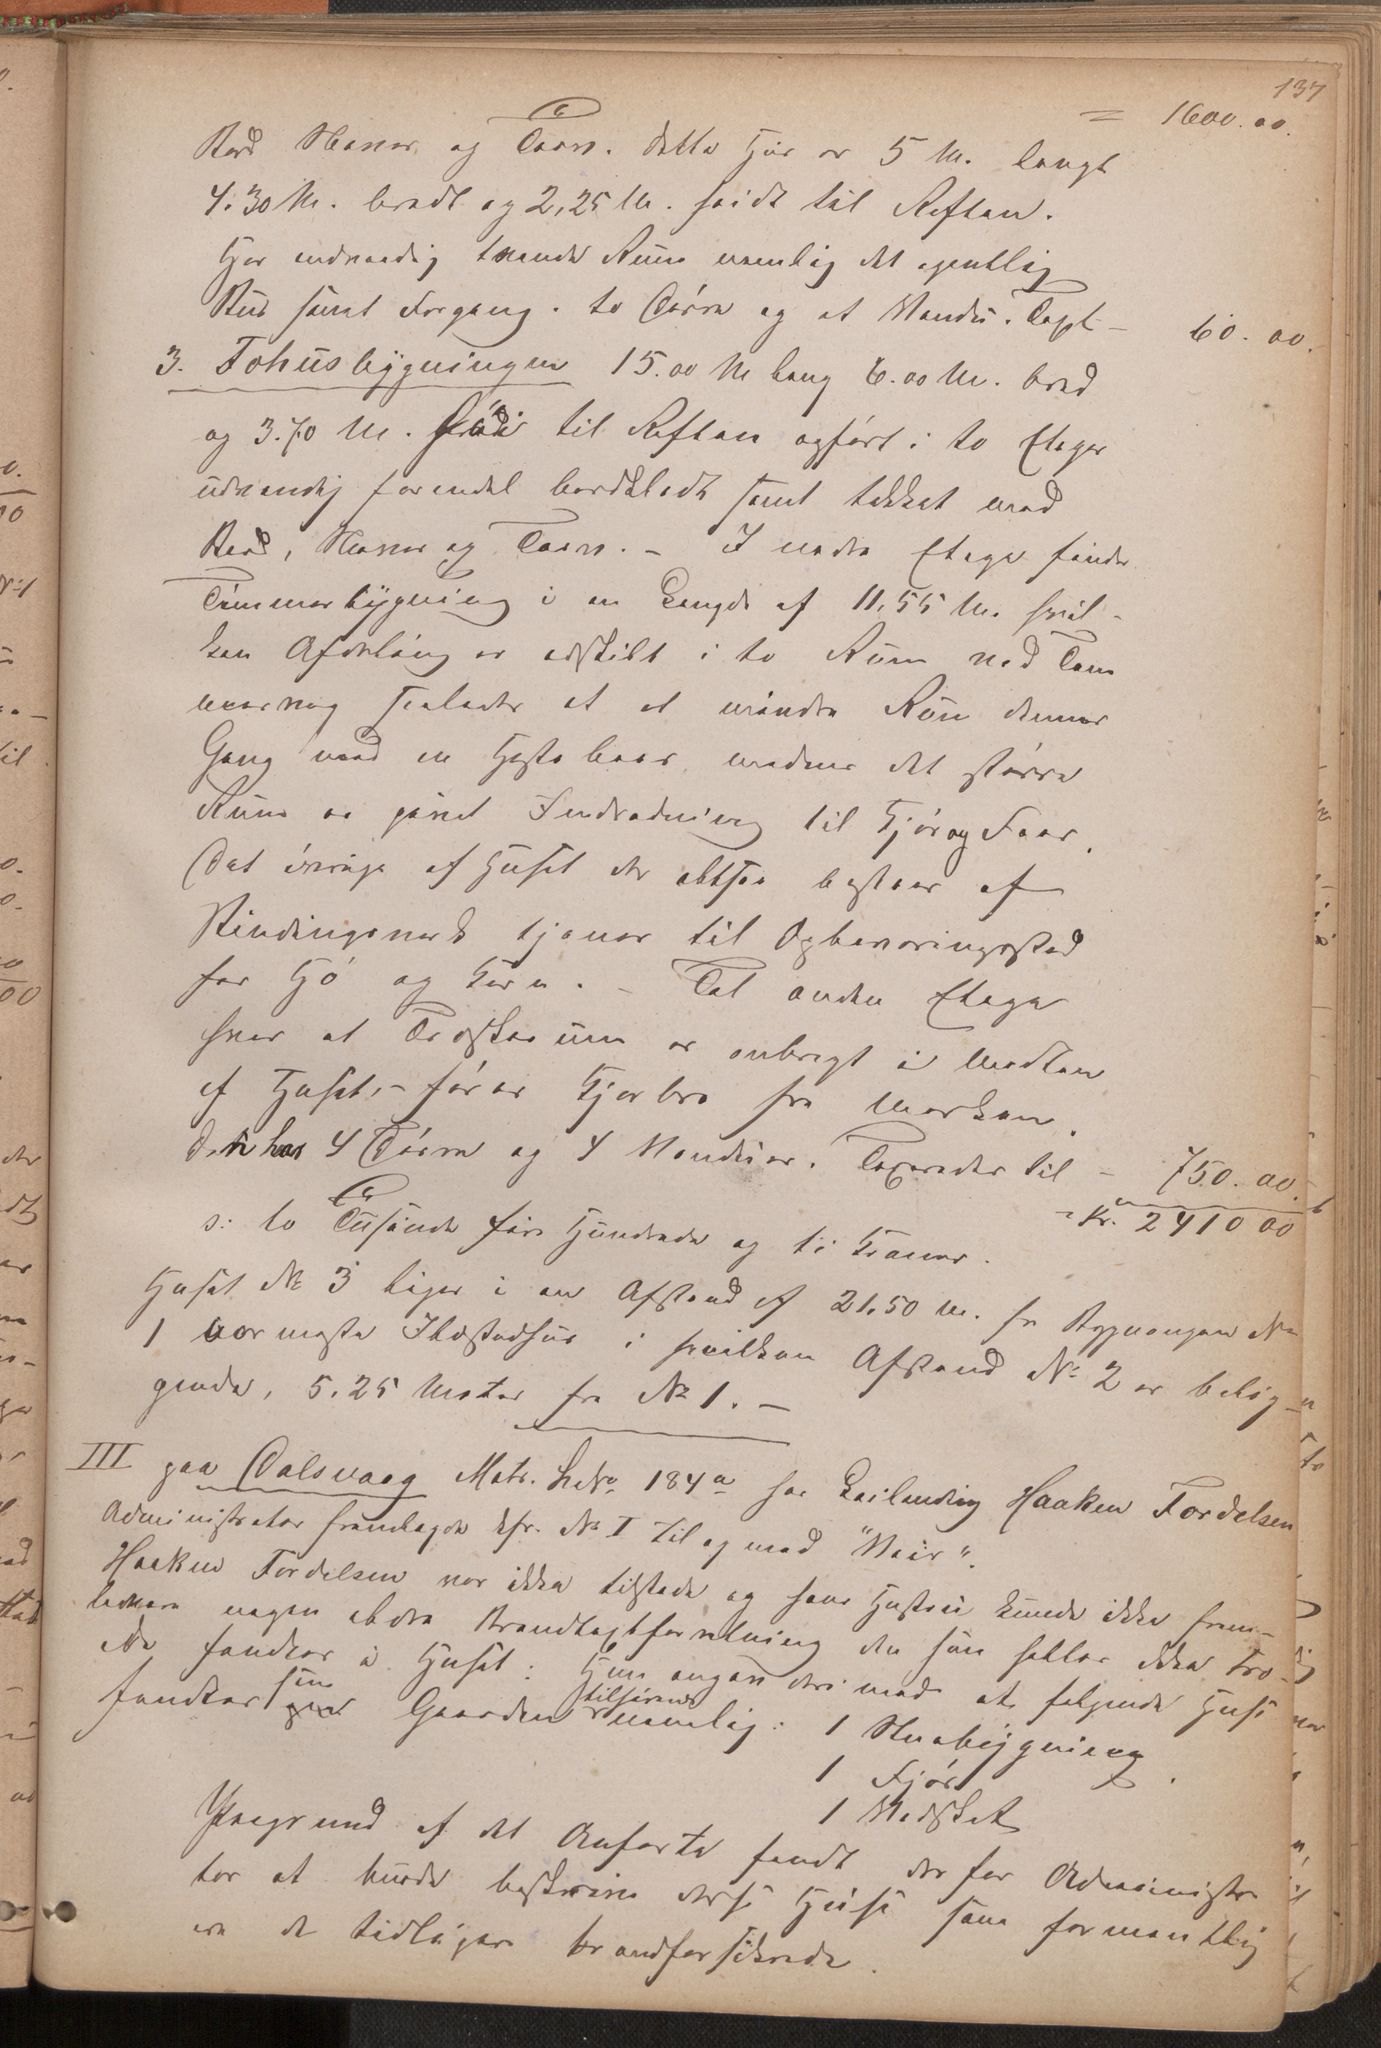 137
= 1600.00.
Bord Næver og Torv. Dette Huus er 5 M. langt
4.30 M. bredt og 2,25 M. høidt til Røsten.
Har indvendig tvende Rum nemlig det egentlig
Rum samt Forgang. to Døre og et Vandu. Taxt – 60.00.
3. Fæhusbygningen 15.00 M lang 6.00 M. bred
og 3.70 M. høi til Røsten opført i to Etager
udvendig forendel bordklædt samt tækket med
Bord, Næver og Torv. – I nedre Etage findes
Tømmerbygning i en Længde af 11,55 M. hvil-
ken Afdeling er adskilt i to Rum ved Tøm
mervæg saaledes at et mindre Rum danner
Gang med en Hestebaas medens det større
Rum er givet Indredning til Kjør og Faar.
Det øvrige af Huset der altsaa bestaar af
Bindingsverk tjener til Opbevaringssted
for Hø og Korn. – Til anden Etage
hvor et Træskerum er anbragt i Midten
af Huset, – fører Kjørbro fra Marken.
Den har 4 Døre og 4 Vanduer. Taxeredes til – 750.00.
– Kr. 2410 00
s: to Tusinde fire Hundrede og ti Kroner.
Huset No 3 ligger i en Afstand af 21.50 M. fra Bygningen No
1 nærmeste Ildstedhus i hvilken Afstand No 2 er belig-
gende, 5.25 Meter fra No 1. –
III paa Dalsvaag Matr. L.No 184a hos Leilending Haaken Tordelsen
Administrator fremlagde kfr. No I til og med "Veir".
Haaken Tordelsen var ikke tilstede og hans Hustru kunde ikke frem-
bevare nogen ældre Brandtaxtforretning da hun heller ikke tro-
ede fandtes i Huset: Hun angav derimod at følgende Huse
fandtes paa Gaarden tilhørende nemlig: 1 Stuebygning
1 Fjøs
1 Vedskot
Paagrund af det Anførte fandt derfor Administra
tor at burde beskrive disse Huse som formentlig
ere de tidligere brandforsikrede.